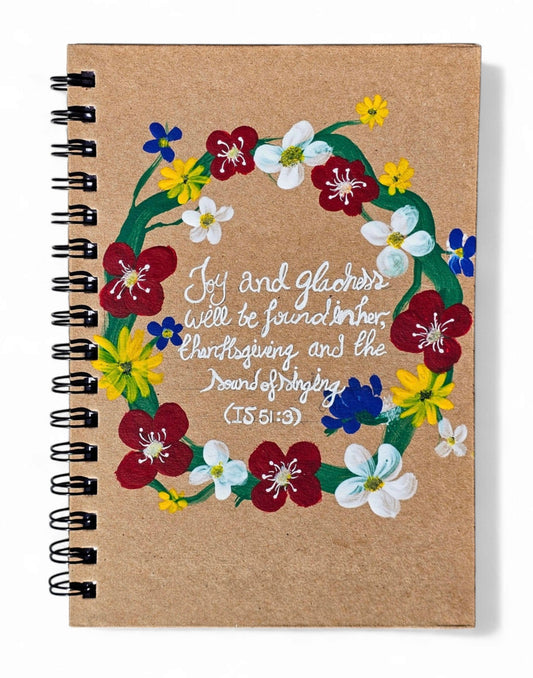 Joy and gladness
will be found in her,
thanksgiving and the
sound of singing
(IS 51:3)